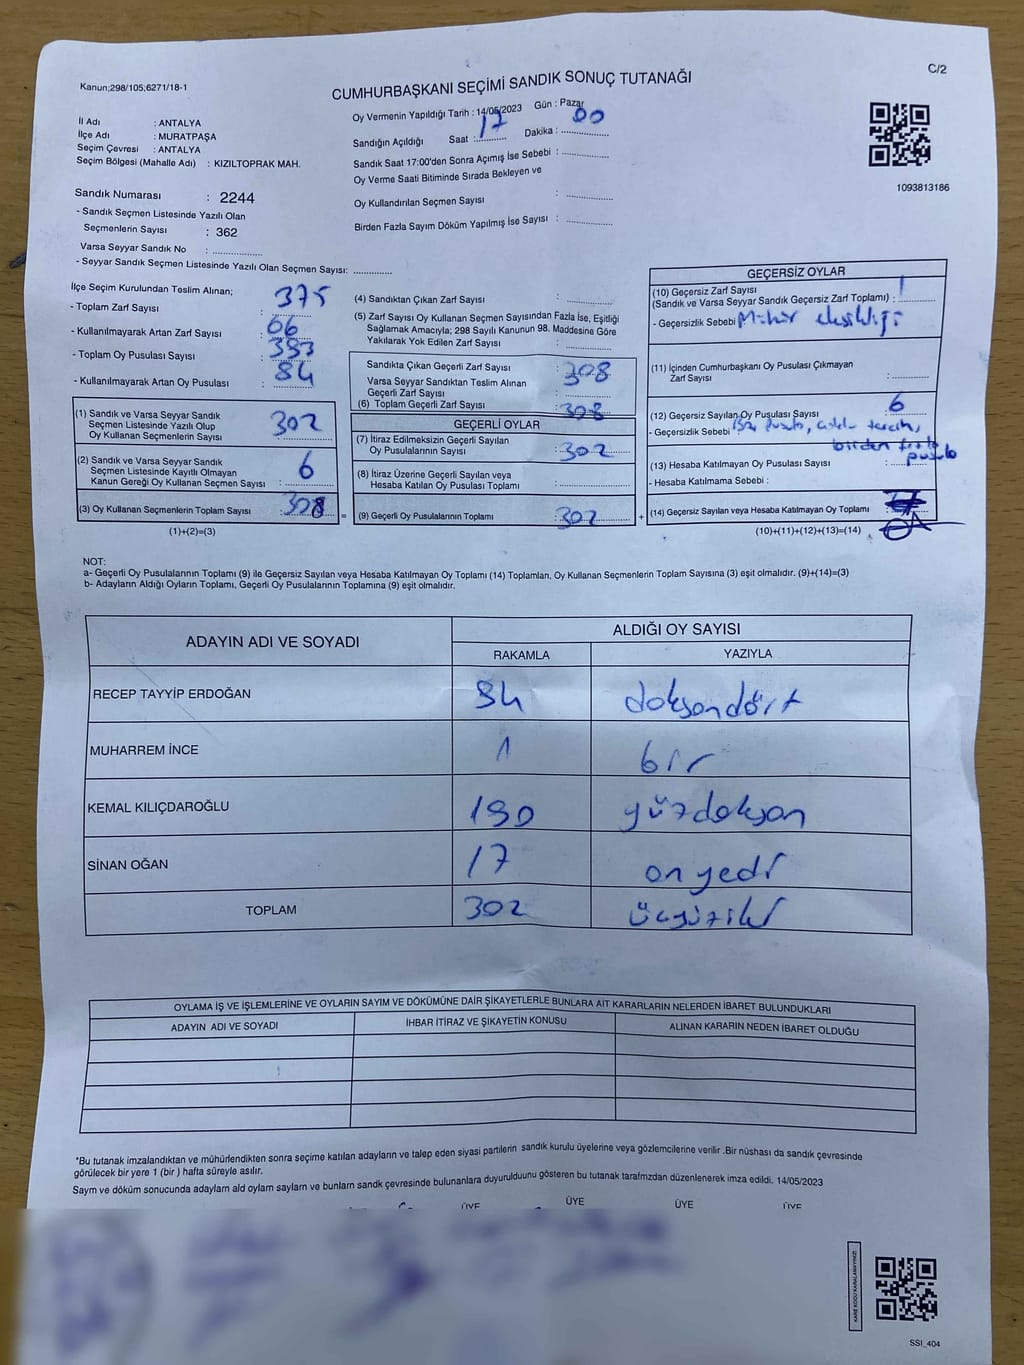 C/2
Kanun;298/105;6271/18-1
CUMHURBAŞKANI SEÇİMİ SANDIK SONUÇ TUTANAĞI
İl Adı : ANTALYA
İlçe Adı : MURATPAŞA
Seçim Çevresi : ANTALYA
Seçim Bölgesi (Mahalle Adı) : KIZILTOPRAK MAH.
Oy Vermenin Yapıldığı Tarih : 14/05/2023 Gün : Pazar
Sandığın Açıldığı Saat : 17 Dakika : 00
Sandık Saat 17:00'den Sonra Açımış İse Sebebi :
Oy Verme Saati Bitiminde Sırada Bekleyen ve
Oy Kullandırılan Seçmen Sayısı :
Birden Fazla Sayım Döküm Yapılmış İse Sayısı :
1093813186
Sandık Numarası : 2244
- Sandık Seçmen Listesinde Yazılı Olan
Seçmenlerin Sayısı : 362
Varsa Seyyar Sandık No :
- Seyyar Sandık Seçmen Listesinde Yazılı Olan Seçmen Sayısı:
İlçe Seçim Kurulundan Teslim Alınan;
- Toplam Zarf Sayısı : 375
- Kullanılmayarak Artan Zarf Sayısı : 66
- Toplam Oy Pusulası Sayısı :
- Kullanılmayarak Artan Oy Pusulası : 84
(1) Sandık ve Varsa Seyyar Sandık
Seçmen Listesinde Yazılı Olup
Oy Kullanan Seçmenlerin Sayısı : 302
(2) Sandık ve Varsa Seyyar Sandık
Seçmen Listesinde Kayıtlı Olmayan
Kanun Gereği Oy Kullanan Seçmen Sayısı : 6
(3) Oy Kullanan Seçmenlerin Toplam Sayısı : 308
(1)+(2)=(3)
(4) Sandıktan Çıkan Zarf Sayısı :
(5) Zarf Sayısı Oy Kullanan Seçmen Sayısından Fazla İse, Eşitliği
Sağlamak Amacıyla; 298 Sayılı Kanunun 98. Maddesine Göre
Yakılarak Yok Edilen Zarf Sayısı :
Sandıkta Çıkan Geçerli Zarf Sayısı : 308
Varsa Seyyar Sandıktan Teslim Alınan
Geçerli Zarf Sayısı :
(6) Toplam Geçerli Zarf Sayısı : 308
GEÇERLİ OYLAR
(7) İtiraz Edilmeksizin Geçerli Sayılan
Oy Pusulalarının Sayısı : 302
(8) İtiraz Üzerine Geçerli Sayılan veya
Hesaba Katılan Oy Pusulası Toplamı :
= (9) Geçerli Oy Pusulalarının Toplamı : 302 +
GEÇERSİZ OYLAR
(10) Geçersiz Zarf Sayısı
(Sandık ve Varsa Seyyar Sandık Geçersiz Zarf Toplamı) : 1
- Geçersizlik Sebebi Mühür eksikliği
(11) İçinden Cumhurbaşkanı Oy Pusulası Çıkmayan
Zarf Sayısı :
(12) Geçersiz Sayılan Oy Pusulası Sayısı : 6
- Geçersizlik Sebebi Boş Pusula, tercih,
birden fazla
pusula
(13) Hesaba Katılmayan Oy Pusulası Sayısı :
- Hesaba Katılmama Sebebi :
(14) Geçersiz Sayılan veya Hesaba Katılmayan Oy Toplamı :
(10)+(11)+(12)+(13)=(14)
NOT:
a- Geçerli Oy Pusulalarının Toplamı (9) ile Geçersiz Sayılan veya Hesaba Katılmayan Oy Toplamı (14) Toplamları, Oy Kullanan Seçmenlerin Toplam Sayısına (3) eşit olmalıdır. (9)+(14)=(3)
b- Adayların Aldığı Oyların Toplamı, Geçerli Oy Pusulalarının Toplamına (9) eşit olmalıdır.
ADAYIN ADI VE SOYADI ALDIĞI OY SAYISI
RAKAMLA YAZIYLA
RECEP TAYYİP ERDOĞAN 94 doksandört
MUHARREM İNCE 1 bir
KEMAL KILIÇDAROĞLU 190 yüzdoksan
SİNAN OĞAN 17 onyedi
TOPLAM 302 üçyüziki
OYLAMA İŞ VE İŞLEMLERİNE VE OYLARIN SAYIM VE DÖKÜMÜNE DAİR ŞİKAYETLERLE BUNLARA AİT KARARLARIN NELERDEN İBARET BULUNDUKLARI
ADAYIN ADI VE SOYADI İHBAR İTİRAZ VE ŞİKAYETİN KONUSU ALINAN KARARIN NEDEN İBARET OLDUĞU
*Bu tutanak imzalandıktan ve mühürlendikten sonra seçime katılan adayların ve talep eden siyasi partilerin sandık kurulu üyelerine veya gözlemcilerine verilir .Bir nüshası da sandık çevresinde
görülecek bir yere 1 (bir ) hafta süreyle asılır.
Sayım ve döküm sonucunda adaylarn ald oylarn saylarn ve bunlarn sandk çevresinde bulunanlara duyurulduunu gösteren bu tutanak tarafmzdan düzenlenerek imza edildi. 14/05/2023
ÜYE ÜYE ÜYE ÜYE
KARE KODU KARALAMAYINIZ!
SSI_404